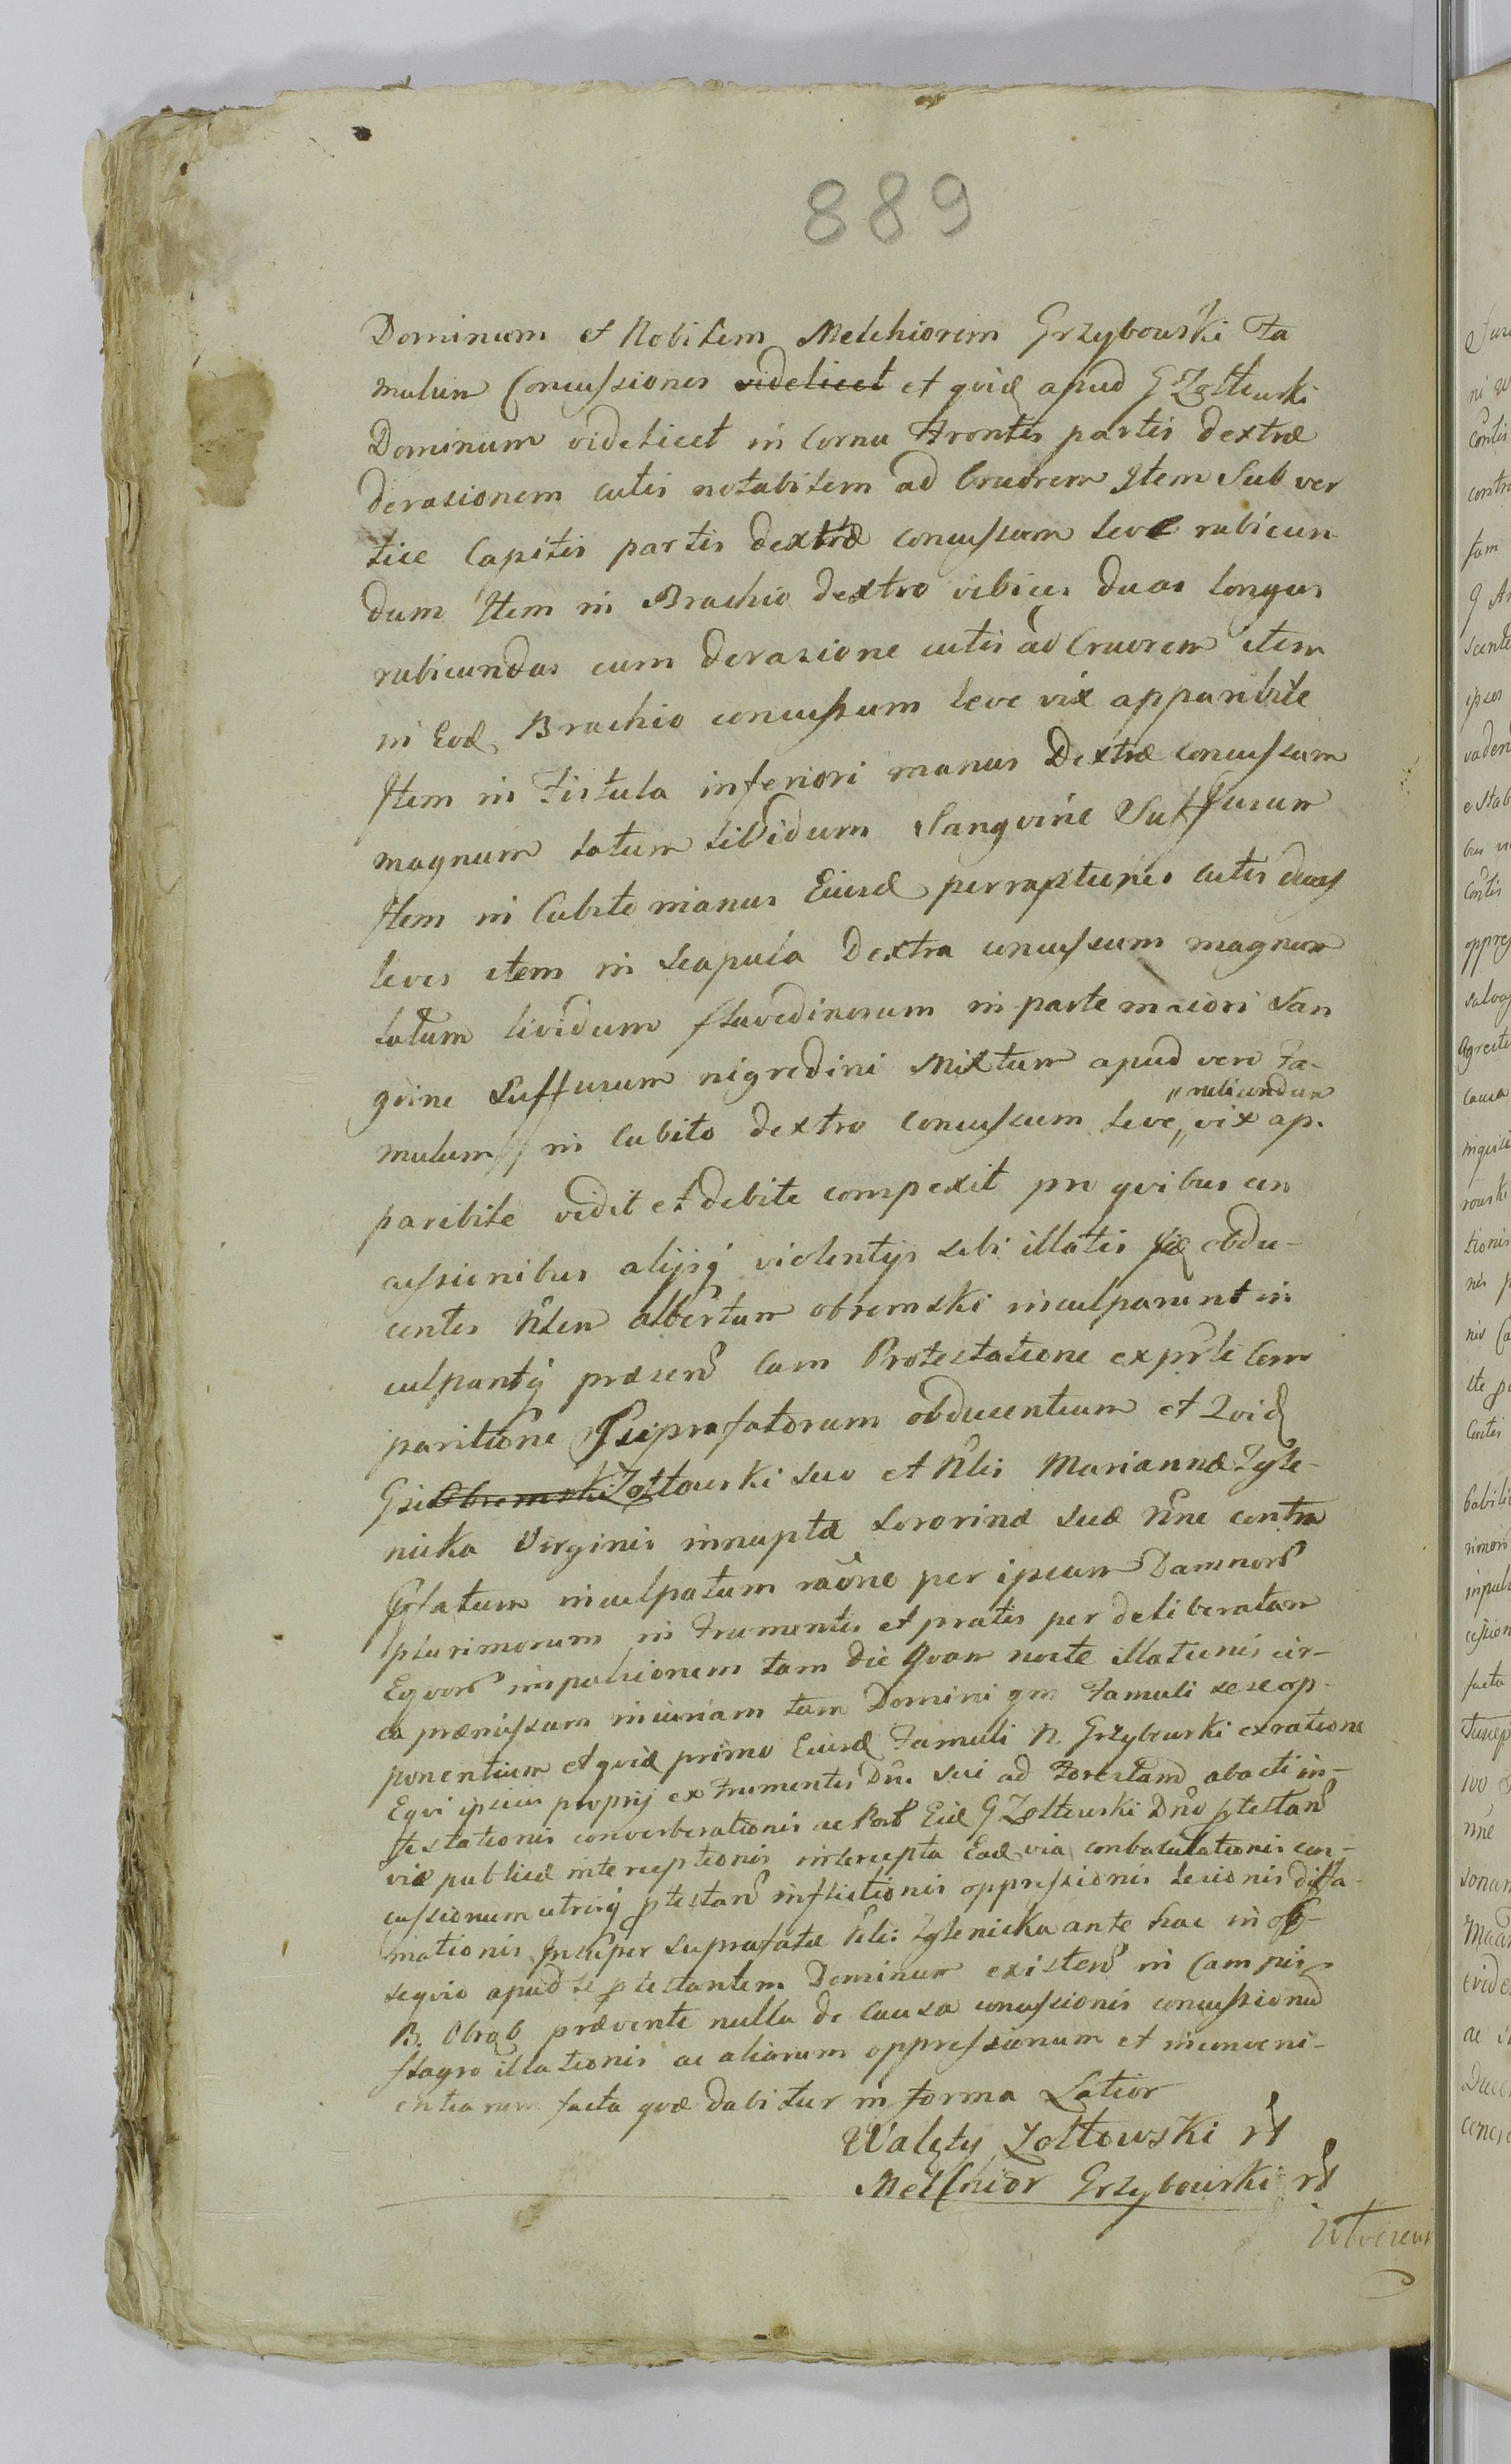 889
Dominum et Nobilem Melchiorem Grzybowski Fa
mulum Concussiones videlicet et quid apud G Zołtowski
Dominum videlicet in Cornu Frontis partis dextræ
derasionem cutis notabilem ad Cruorem Item Sub ver
tice Capitis partis dextræ concussum leve rubicun
dum Item in Brachio dextro vibices duas longas
rubicundas cum derasione cutis ad Cruorem item
in Eod Brachio concussum leve vix apparibile
Item in Fistula inferiori manus Dextræ concussum
magnum totum livídum Sangvine Suffusum
Item in Cubito manus Eiusd perraptiones cutis duas
leves item in scapula Dextra concussum magnum
totum lividum flavedinosum in parte maiori San
gvine Suffusum nigredini Mixtum apud vero Fa-
mulum in Cubito dextro concussum leve „ vix ap.
„ rubicundum
paribile vidit et debite compexit pro qvibus con
cussionibus alijsq violentijs sibi illatis sic obdu-
centes Nlem Albertum obremski inculparunt in
culpantq præsen Cum Protestatione ex prsli Com
paritione Gsi prafatorum obducentium et Qvid
Gsi Obremski Zołtowski suo et Nlis Mariannæ Zgle-
nicka Virginis innuptæ sororinæ suæ nne contra
Prfatum inculpatum raône per ipsum Damnor
plurimorum in Frumentis et pratis per deliberatam
Eqvor impulsionem tam die qvam nocte illationis cir-
ca præmissum iniuriam tam Domini qm Famuli sese op-
ponentium et qvid primo Eiusd Famuli N. Grzybowski ex ratione
Eqvi ipsius proprij ex Frumentis Dni sui ad Forestam abacti in-
festationis converberationis ac Post Eid G Zołtowski Dno ptestan
viæ publicæ interceptionis intercepta Ead via conbaculationis con-
cussionum utrisq ptestan inflictionis oppressionis lesionis diffa-
mationis Insuper suprafatæ Nlis Zglenicka ante hac in ob-
seqvio apud se ptestantem Dominum existen in Campis
B. Obrąb prævente nulla de Causa concussionis concussionu
flagro illationis ac aliarum oppressionum et inconveni-
entiarum facta qvæ dabitur in forma Latior
Walęty Zołtowski
Melchior Grzybowski